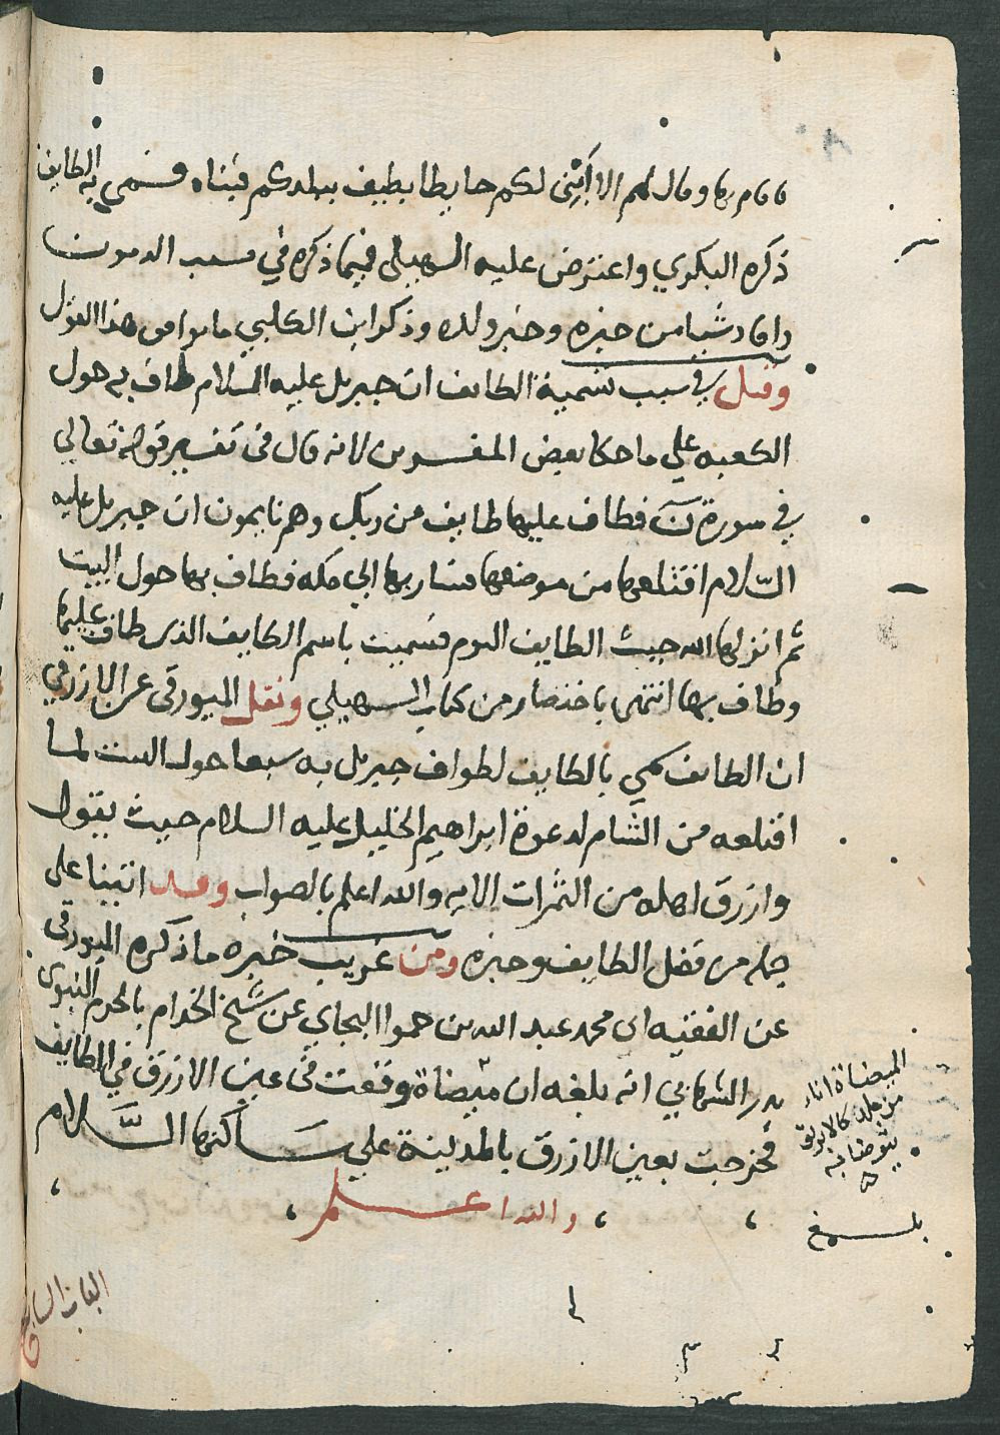 فاقام بها وقال لهم الا ابني لكم حايطا يطيف ببلدكم فبناه فسمي به الطايف
ذكره البكري واعترض عليه السهيلي فيما ذكره في نسب الدمون
وافاد شيا من خبره وخبر ولده وذكر ابن الكلبي ما يوافق هذا القول
وقيل في سبب تسمية الطايف ان جبريل عليه السلام طاف به حول
الكعبه علي ما حكا بعض المفسرين لانه قال في تفسير قوله تعالي
في سورة نَ فطاف عليها طايف من ربك وهم نايمون ان جبريل عليه
السّلام اقتلعها من موضعها فسار بها الي مكه فطاف بها حول البيت
ثم انزلها الله حيث الطايف اليوم فسميت باسم الطايف الذي طاف عليها
وطاف بها انتهى باختصار من كتاب السهيلي ونقل الميورقي عن الازرقي
ان الطايف سمي بالطايف لطواف جبريل به سبعا حول البيت لما
اقتلعه من الشام لدعوة ابراهيم الخليل عليه السلام حيث يقول
وارزق اهله من الثمرات الايه والله اعلم بالصواب وقد اتينا على
جمله من فضل الطايف وخبره ومن غريب خبره ما ذكره الميورقي
عن الفقيه ابي محمد عبد الله بن حموا البجاي عن شيخ الخدام بالحرم النبوي
بدر الشهابي انه بلغه ان ميضاة وقعت في عين الازرق في الطايف
فخرجت بعين الازرق بالمدينة علي ساكنها السَّلام
والله اعلم
الميضاة انا
من جلد كالابريق
يتوضا به
بلغ
الباب السابع